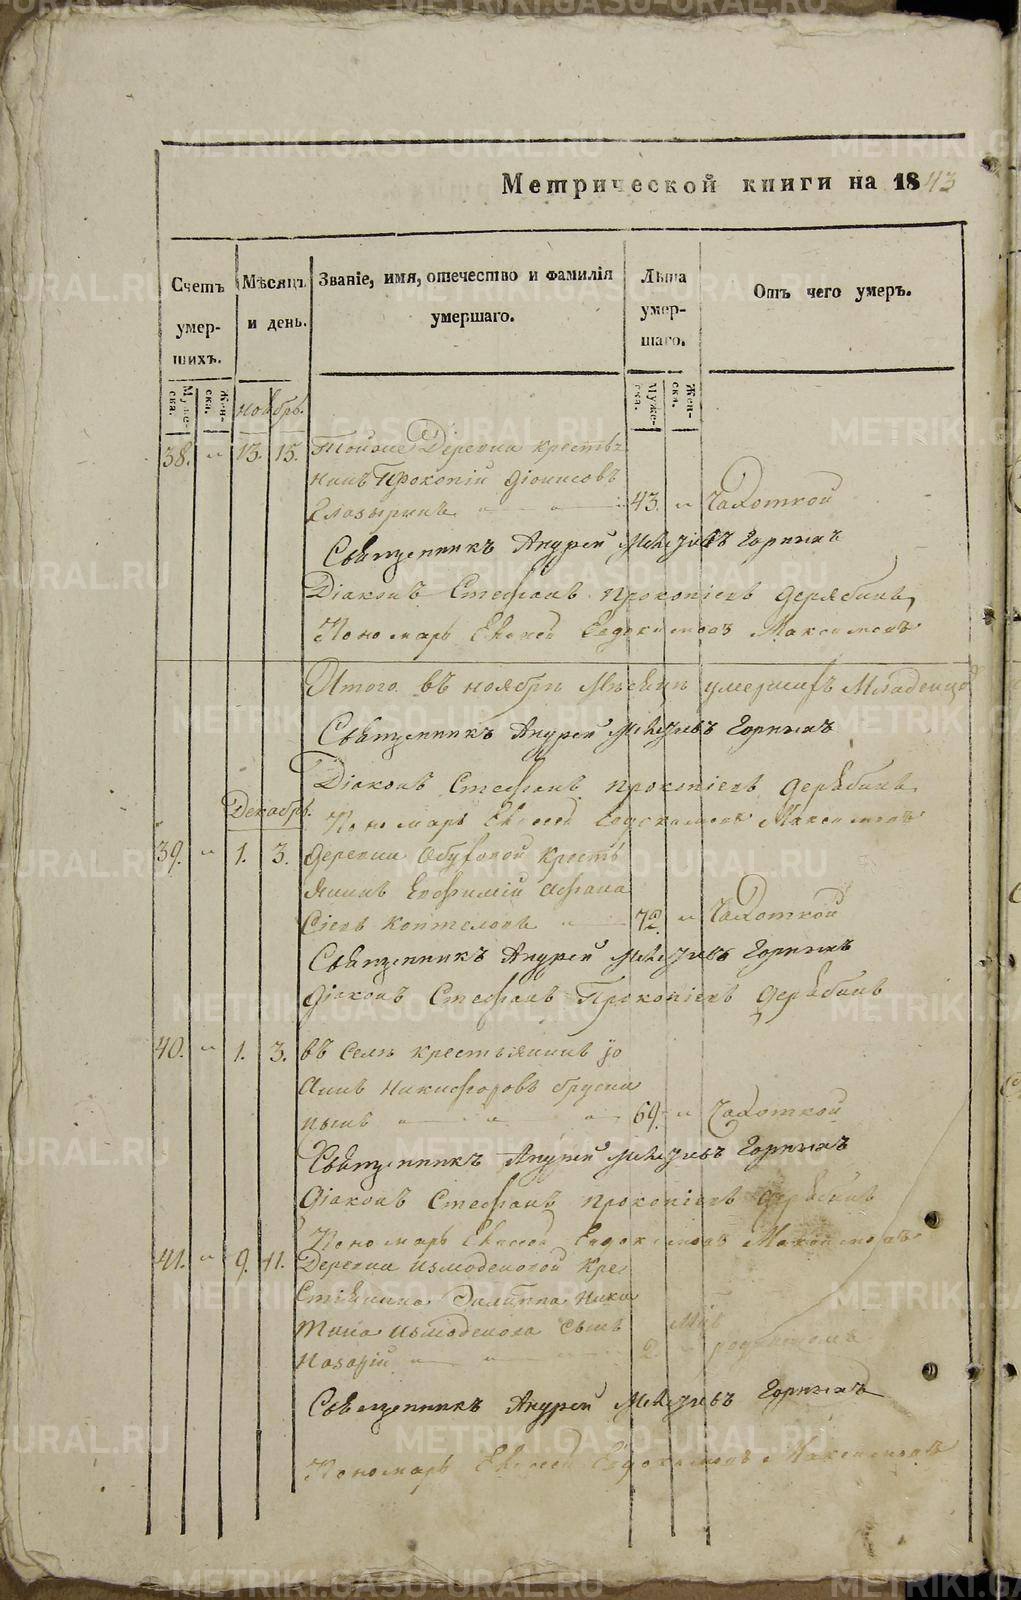 Метрической книги на 1843
Счетъ умер-шихъ.
Мѣсяцъ и день.
Званіе, имя, отечество и фамилія умершаго.
Лѣта умер-шаго.
Отъ чего умеръ.
Муже-ска.
Жен-ска.
Муже-ска.
Жен-ска.
Ноябрь.
38. " 13. 15. Тойже Деревни крестья
нинъ Прокопій Діонисовъ
Глазыринъ " " 43. " Чахоткой
Священникъ Андрей Горныхъ
Діаконъ Стефанъ Прокопіевъ Дерябинъ,
Пономарь Евсей Евдокимовъ Максимовъ
Итого въ ноябрѣ Мѣсяцѣ умершихъ Младенцо
Священникъ Андрей Горныхъ
Діаконъ Стефанъ Прокопіевъ Дерябинъ
Декабрь.
Пономарь Евсей Евдокимовъ Максимовъ
39. " 1. 3. Деревни Обуховой Кресть
янинъ Евфимій Афана
сіевъ Коптеловъ " 72. " Чахоткой
Священникъ Андрей Горныхъ
Діаконъ Стефанъ Прокопіевъ Дерябинъ
40. " 1. 3. въ Селѣ крестьянинъ Іо
аннъ Никифоровъ Брусни
цынъ " " " 69. " Чахоткой
Священникъ Андрей Горныхъ
Діаконъ Стефанъ Прокопіевъ Дерябинъ
Пономарь Евсей Евдокимовъ Максимовъ
41. " 9. 11. Деревни Измоденовой Кре
стьянина Филиппа Ники
тина Измоденова сынъ
Назарій " " 2. " родимцомъ
Священникъ Андрей Горныхъ
Пономарь Евсей Евдокимовъ Максимовъ
METRIKI.GASO-URAL.RU